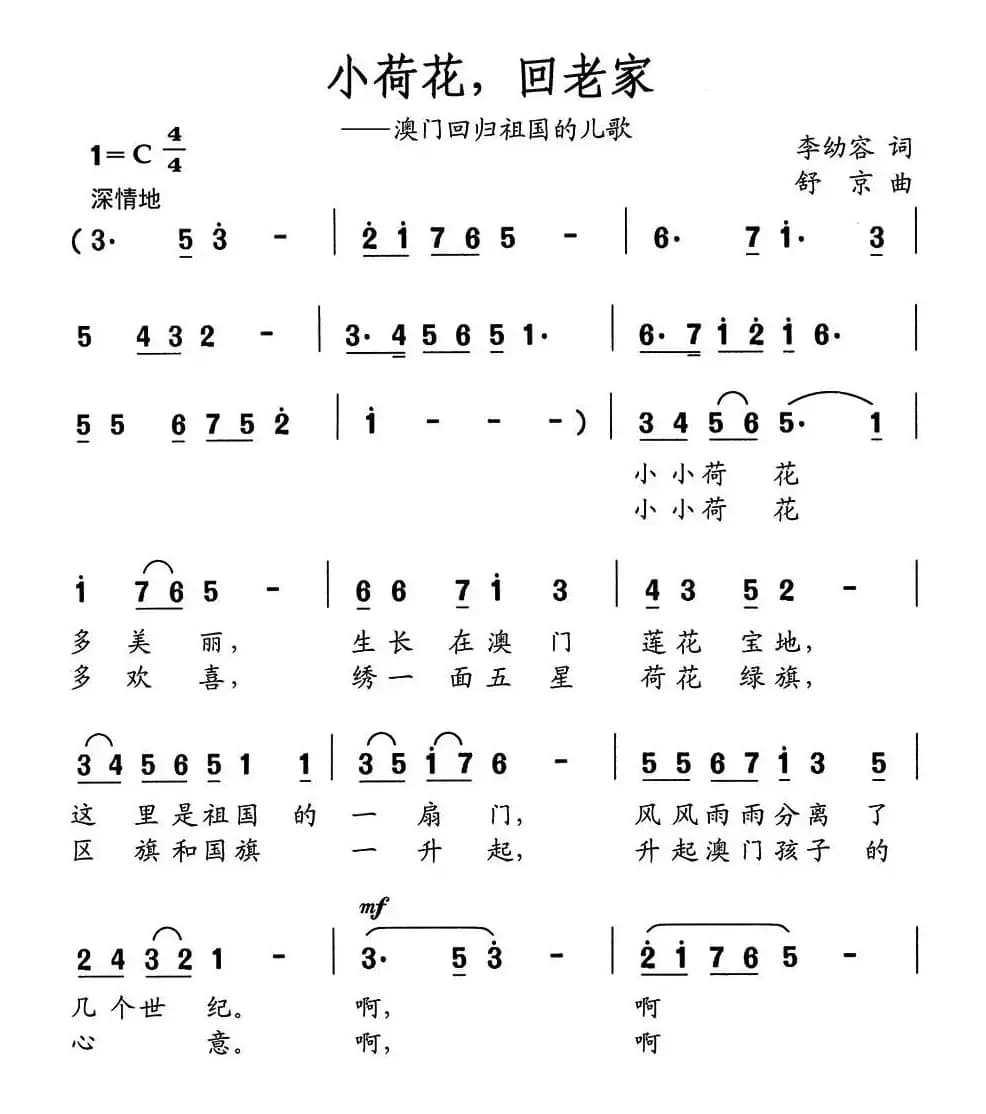 小荷花，回老家
——澳门回归祖国的儿歌
1=C 4/4
李幼容 词
深情地
舒 京 曲
(3· 5 3̇ - | 2̇ 1̇ 7 6 5 - | 6· 7 1̇· 3 |
5 4 3 2 - | 3· 4 5 6 5 1· | 6· 7 1̇ 2̇ 1̇ 6· |
5 5 6 7 5 2̇ | 1̇ - - -) | 3 4 5 6 5· 1 |
小 小 荷 花
小 小 荷 花
1̇ 7 6 5 - | 6 6 7 1̇ 3 | 4 3 5 2 - |
多 美 丽， 生 长 在 澳 门 莲 花 宝 地，
多 欢 喜， 绣 一 面 五 星 荷 花 绿 旗，
3 4 5 6 5 1 1 | 3 5 1̇ 7 6 - | 5 5 6 7 1̇ 3 5 |
这 里 是 祖 国 的 一 扇 门， 风 风 雨 雨 分 离 了
区 旗 和 国 旗 一 升 起， 升 起 澳 门 孩 子 的
mf
2 4 3 2 1 - | 3· 5 3̇ - | 2̇ 1̇ 7 6 5 - |
几 个 世 纪。 啊， 啊
心 意。 啊， 啊